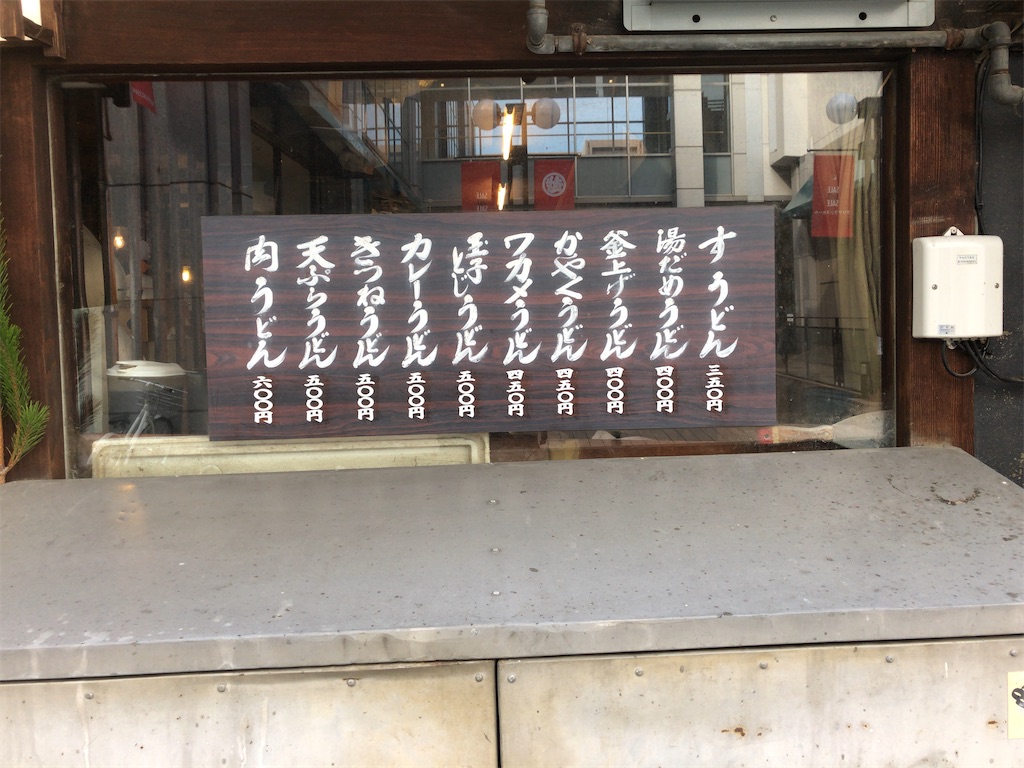 すうどん 三五〇円
湯だめうどん 四〇〇円
釜上げうどん 四〇〇円
かやくうどん 四五〇円
ワカメうどん 四五〇円
玉子とじうどん 五〇〇円
カレーうどん 五〇〇円
きつねうどん 五〇〇円
天ぷらうどん 五〇〇円
肉うどん 六〇〇円
SALE
SALE